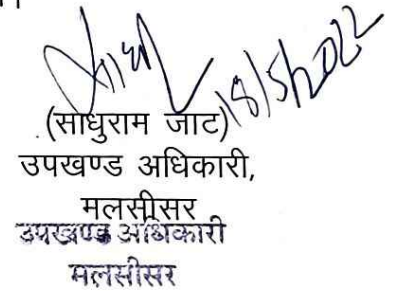 साधु 18/5/2022
(साधुराम जाट)
उपखण्ड अधिकारी,
मलसीसर
उपखण्ड अधिकारी
मलसीसर